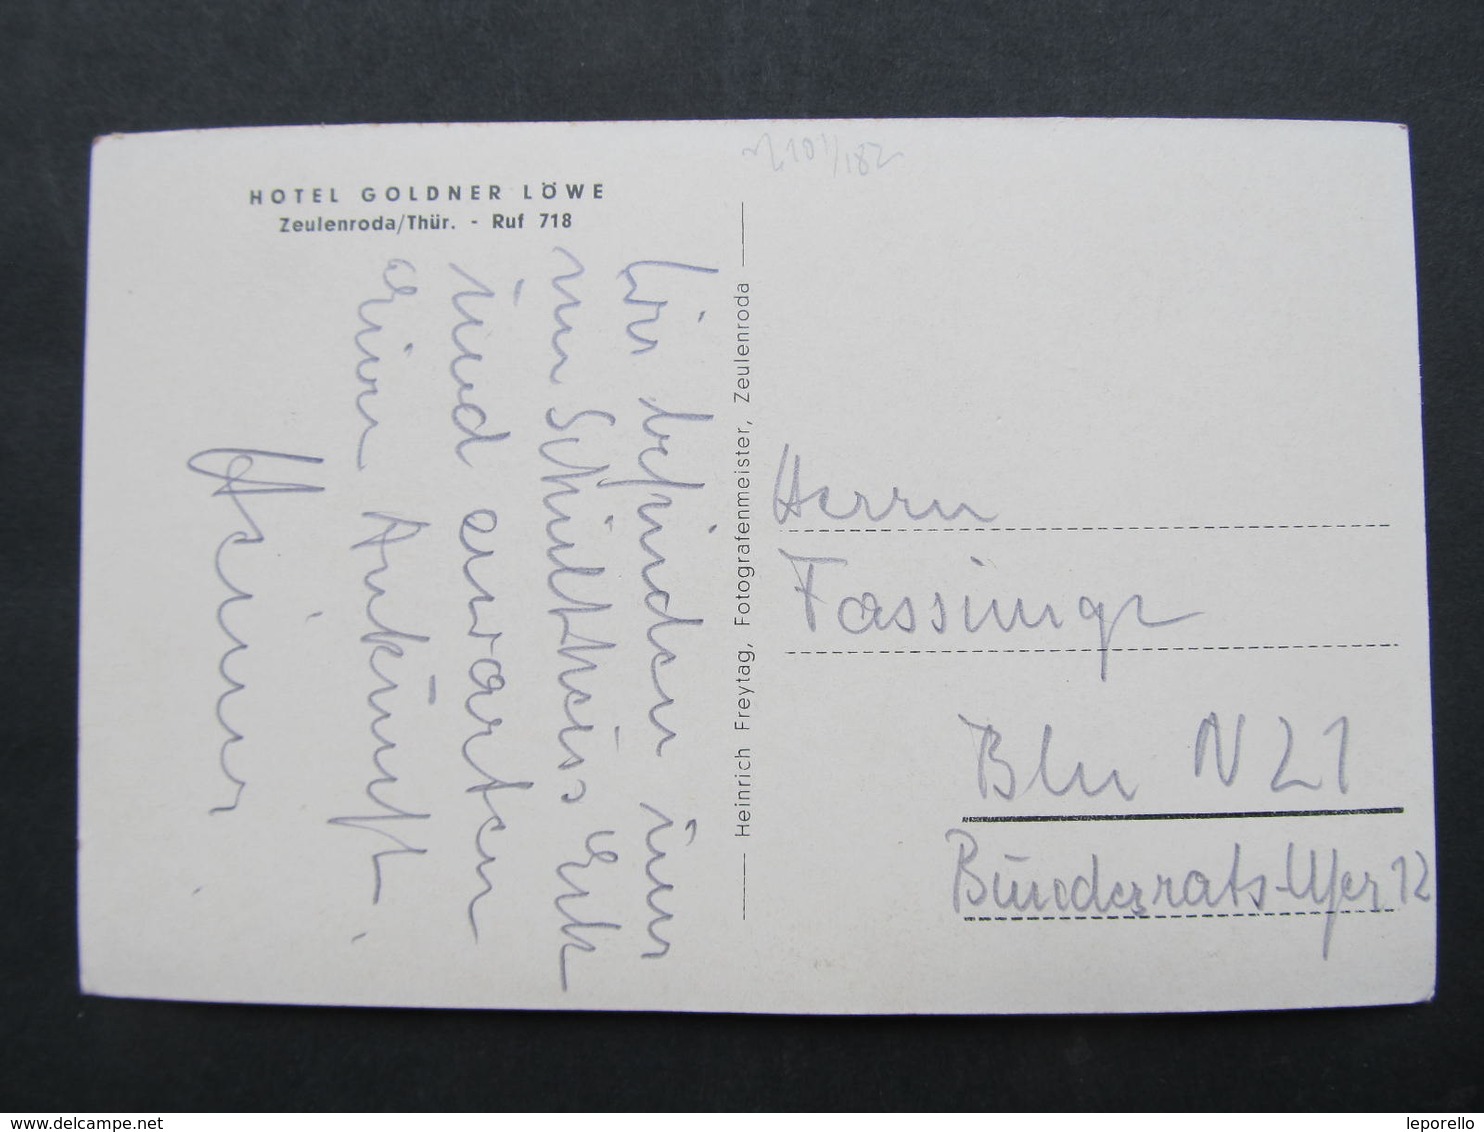 HOTEL GOLDNER LÖWE
Zeulenroda/Thür. - Ruf 718
Wir befinden uns
im Schultheiss Eck
und erwarten
eine Ankunft.
Heinz
Heinrich Freytag, Fotografenmeister, Zeulenroda
Herrn
Bln N 21
Bundesrats-Ufer 12
delcampe.net
leporello